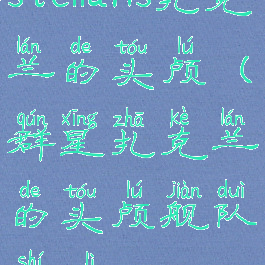 stellaris扎克
lán de tóu lú
兰的头颅（
qún xīng zhā kè lán
群星扎克兰
de tóu lú jiàn duì
的头颅舰队
shí lì